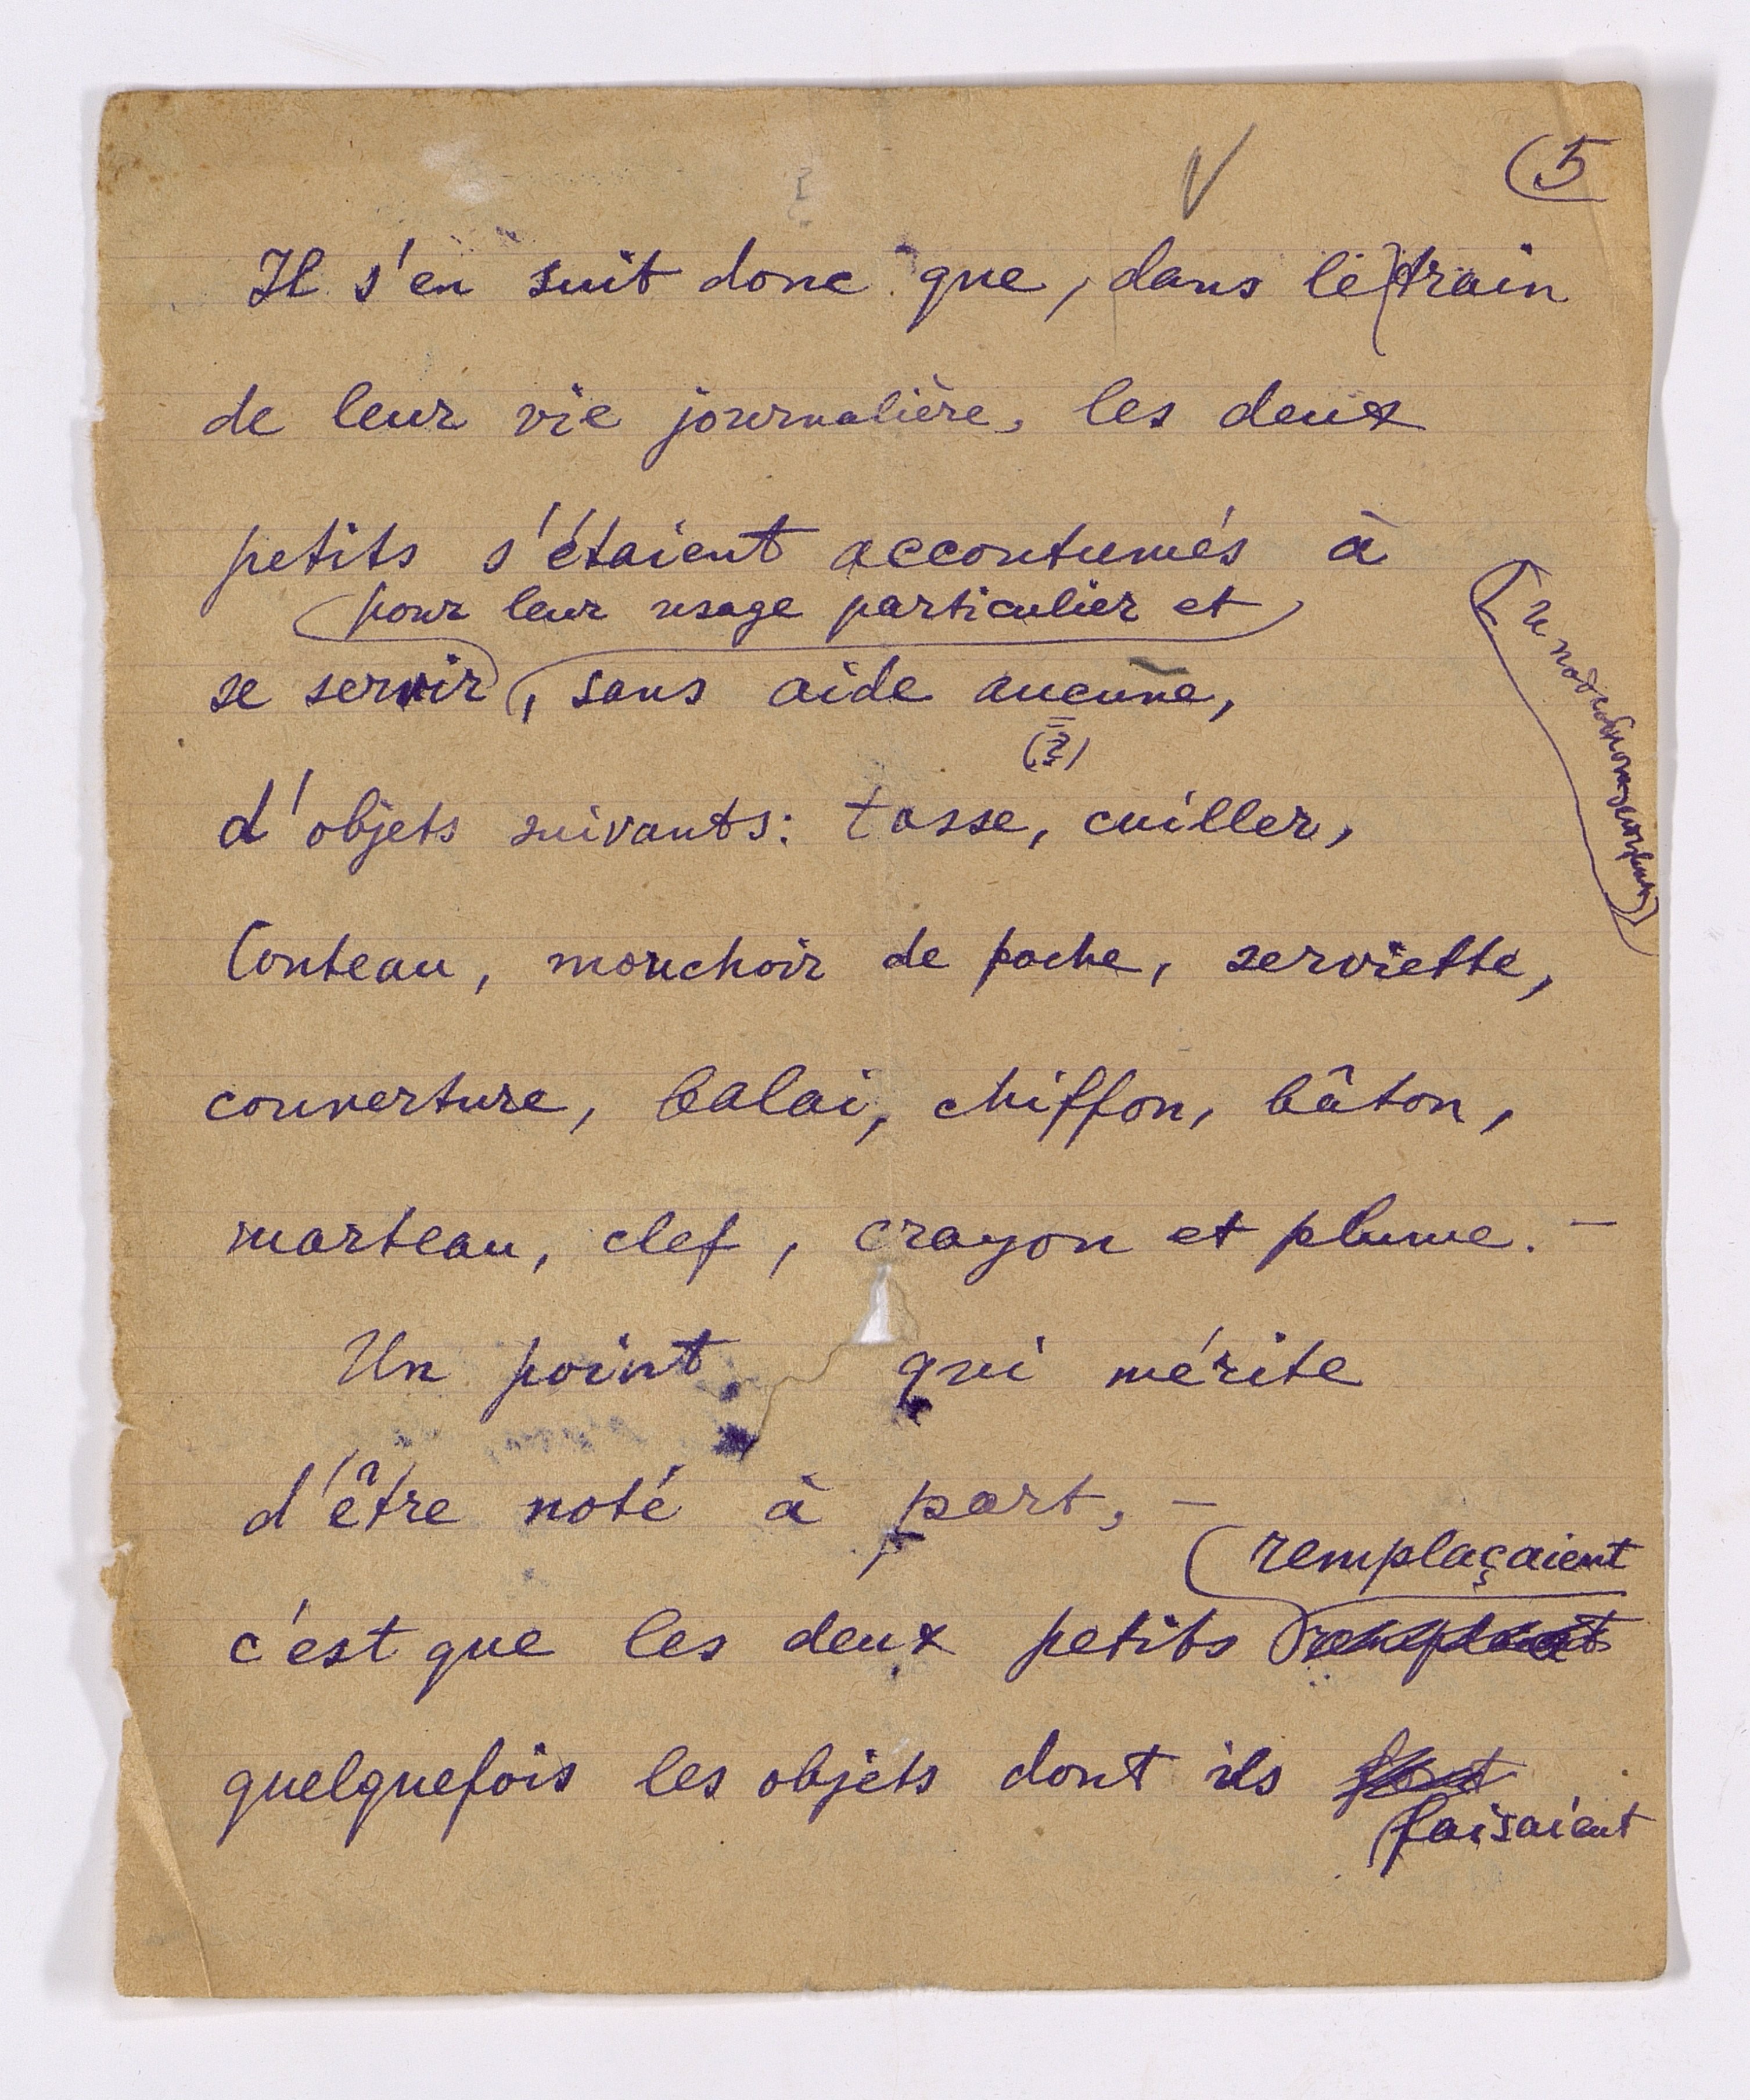 5
Il s'en suit donc que, dans le train
de leur vie journalière, les deux
petits s'étaient accoutumés à
pour leur usage particulier et
se servir, sans aide aucune,
(?)
d'objets suivants: tasse, cuiller,
Couteau, mouchoir de poche, serviette,
couverture, balai, chiffon, bâton,
marteau, clef, crayon et plume. —
Un point qui mérite
d'être noté à part, —
remplaçaient
c'est que les deux petits
quelquefois les objets dont ils
faisaient